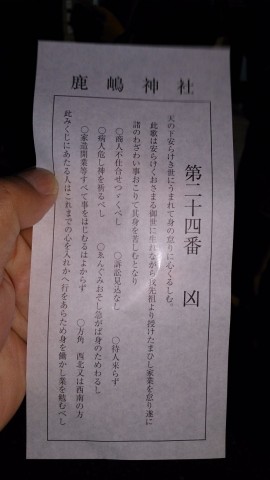 鹿嶋神社
第二十四番 凶
天の下安らけき世にうまれて身の怠りに心くるしむ。
此歌は安らけくおさまる御世に生れながら我先祖より授けたまひし家業を怠り遂に
諸のわざわい事おこりて其身を苦しむとなり
〇商人不仕合せつゞくべし 〇訴訟見込なし 〇待人来らず
〇病人危し神を祈るべし 〇ゑんぐみおそし急がば身のためわるし
〇家造開業等すべて事をはじむるはよからず 〇方角 西北又は西南の方
此みくじにあたる人はこれまでの心を入れかへ行をあらため身を働かし業を勉むべし